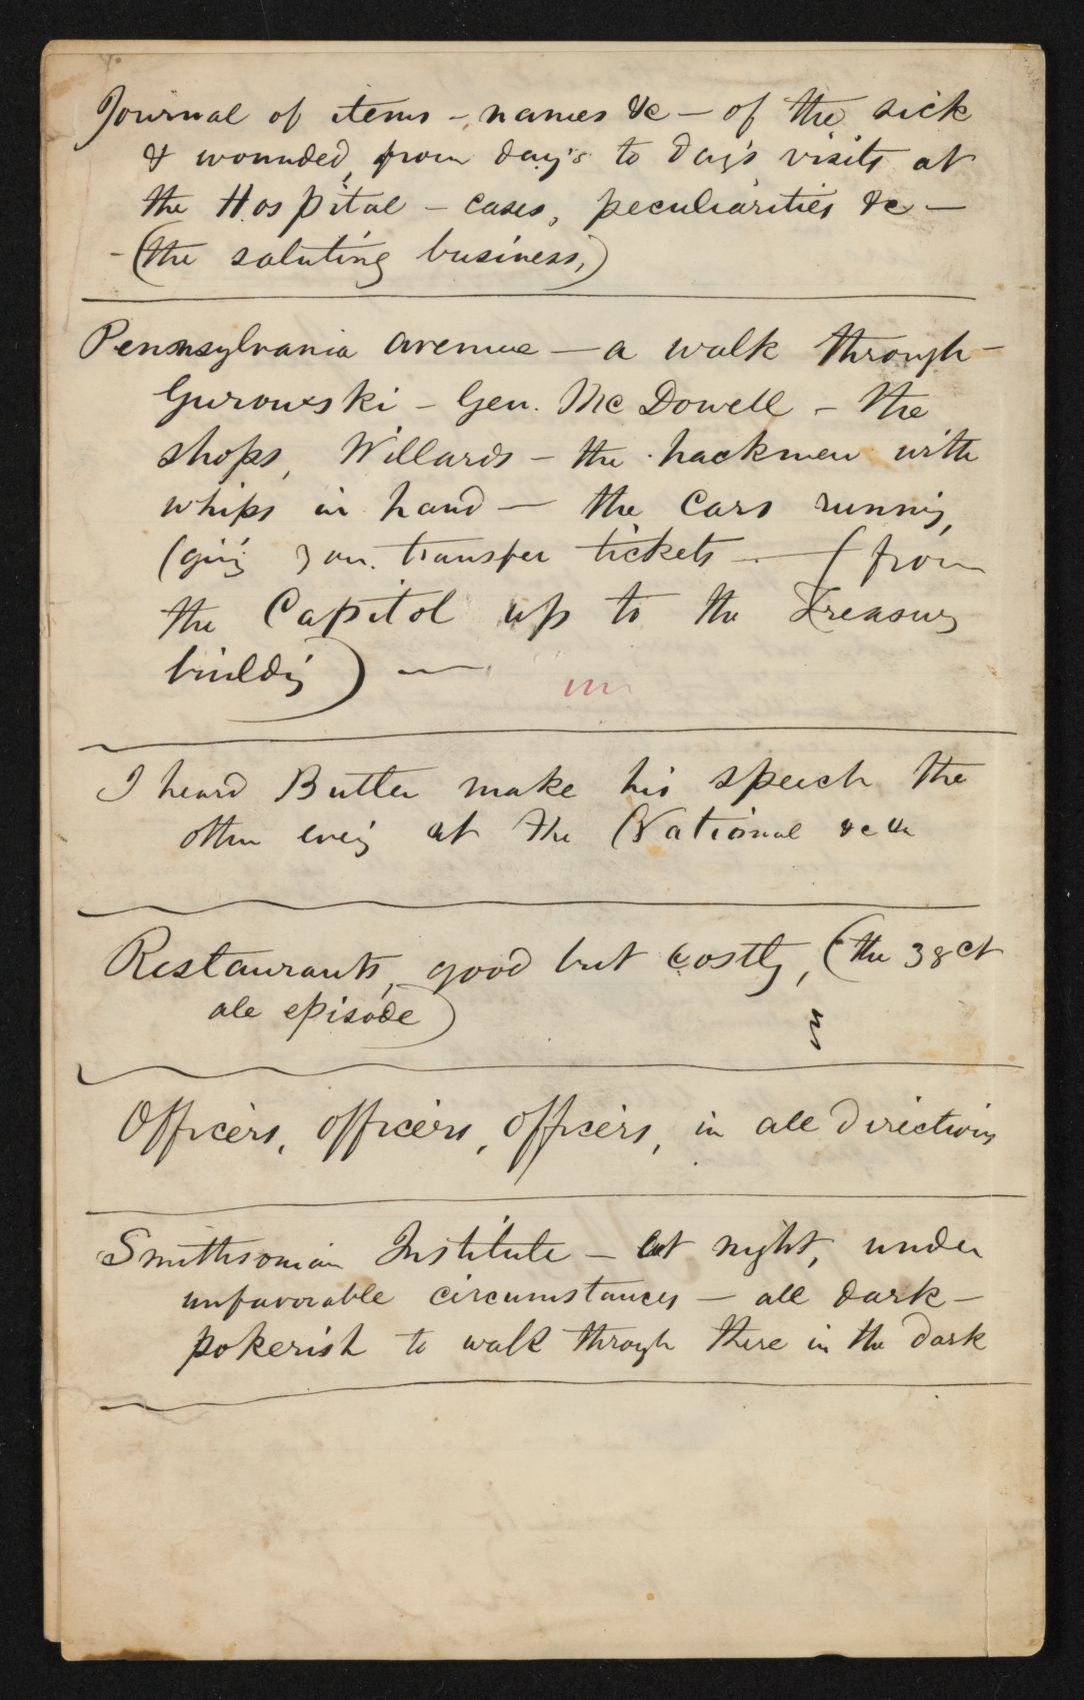 Journal of items – names &c – of the sick
& wounded, from day's to day's visits at
the Hospital – cases, peculiarities &c –
– (the saluting business,)
Pennsylvania avenue – a walk through –
Gurowski – Gen. McDowell – the
shops, Willards – the hackmen with
whips in hand – the cars running,
(givig you transfer tickets – (from
the Capitol up to the Treasury
buildig) –
I heard Butler make his speech the
other eveig at the National &c &c
Restaurants, good but costly, (the 38 ct
ale episode)
Officers, officers, officers, in all directions
Smithsonian Institute – at night, under
unfavorable circumstances – all dark –
pokerish to walk through there in the dark